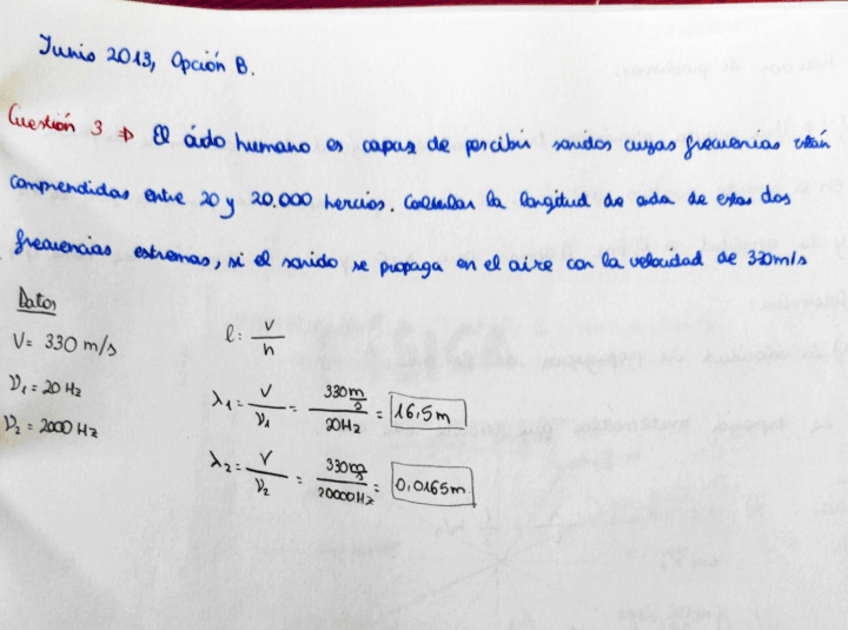 Junio 2013, Opción B.
Cuestión 3 ⇒ El oído humano es capaz de percibir sonidos cuyas frecuencias están
comprendidas entre 20 y 20.000 hercios. Calcular la longitud de onda de estas dos
frecuencias extremas, si el sonido se propaga en el aire con la velocidad de 330m/s
Datos
V= 330 m/s
ν₁ = 20 Hz
ν₂ = 2000 Hz
l = v/n
λ₁ = v/ν₁ = 330 m/s / 20Hz = 16,5 m
λ₂ = v/ν₂ = 330 m/s / 20000Hz = 0,0165m